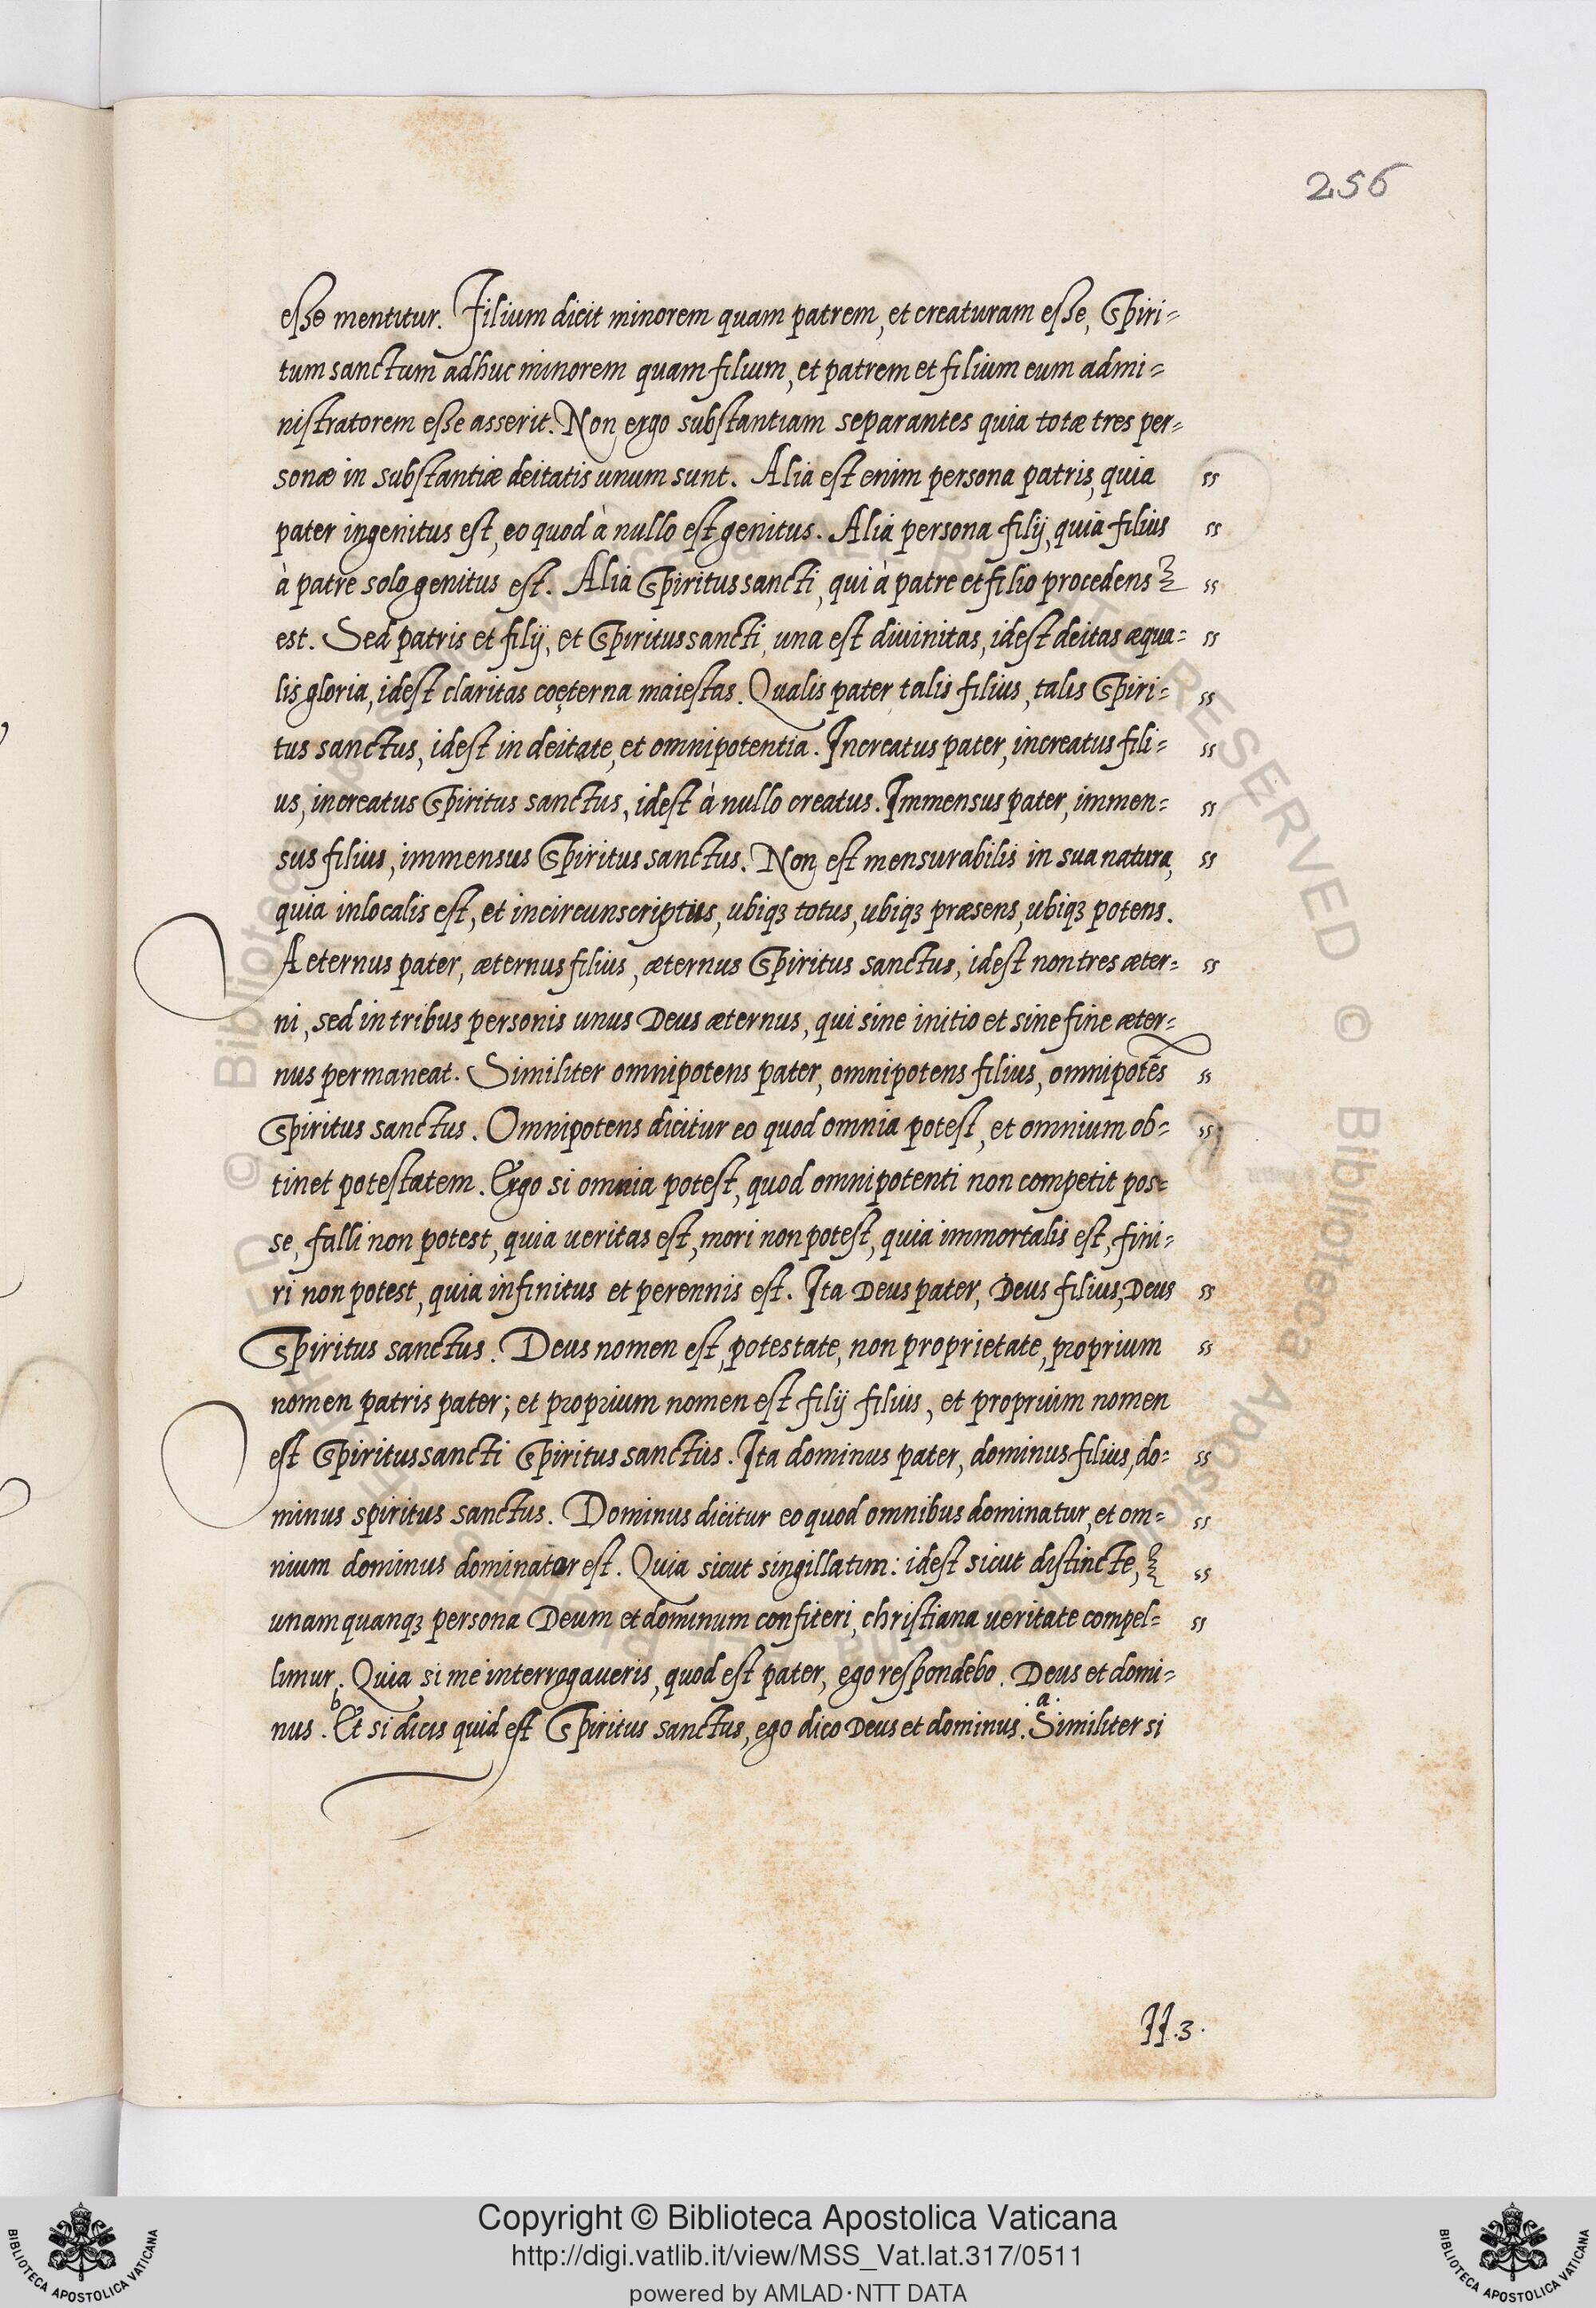 256
esse mentitur. Filium dicit minorem quam patrem, et creaturam esse, Spiri=
tum sanctum adhuc minorem quam filium, et patrem et filium eum admi=
nistratorem esse asserit. Non ergo substantiam separantes quia totæ tres per=
sonæ in substantiæ deitatis unum sunt. Alia est enim persona patris, quia "
pater ingenitus est, eo quod à nullo est genitus. Alia persona filij, quia filius "
à patre solo genitus est. Alia Spiritussancti, qui à patre et filio procedens "
est. Sed patris et filij, et Spiritussancti, una est diuinitas, idest deitas æqua= "
lis gloria, idest claritas coęterna maiestas. Qualis pater, talis filius, talis Spiri= "
tus sanctus, idest in deitate, et omnipotentia. Increatus pater, increatus fili= "
us, increatus Spiritus sanctus, idest à nullo creatus. Immensus pater, immen= "
sus filius, immensus Spiritus sanctus. Non est mensurabilis in sua natura, "
quia inlocalis est, et incircunscriptus, ubiqꝫ totus, ubiqꝫ præsens, ubiqꝫ potens.
Aeternus pater, æternus filius, æternus Spiritus sanctus, idest non tres æter= "
ni, sed in tribus personis unus Deus æternus, qui sine initio et sine fine æter=
nus permaneat. Similiter omnipotens pater, omnipotens filius, omnipotēs "
Spiritus sanctus. Omnipotens dicitur eo quod omnia potest, et omnium ob= "
tinet potestatem. Ergo si omnia potest, quod omnipotenti non competit pos=
se, falli non potest, quia ueritas est, mori non potest, quia immortalis est, fini=
ri non potest, quia infinitus et perennis est. Ita Deus pater, Deus filius, Deus "
Spiritus sanctus. Deus nomen est, potestate, non proprietate, proprium "
nomen patris pater; et proprium nomen est filij filius, et proprium nomen
est Spiritussancti Spiritus sanctus. Ita dominus pater, dominus filius, do= "
minus spiritus sanctus. Dominus dicitur eo quod omnibus dominatur, et om= "
nium dominus dominator est. Quia sicut singillatim: idest sicut distincte, "
unamquanqꝫ persona Deum et dominum confiteri, christiana ueritate compel= "
limur. Quia si me interrogaueris, quod est pater, ego respondebo. Deus et domi=
nus. b Et si dicis quid est Spiritus sanctus, ego dico Deus et dominus. a Similiter si
II.3.
Copyright © Biblioteca Apostolica Vaticana
http://digi.vatlib.it/view/MSS_Vat.lat.317/0511
powered by AMLAD·NTT DATA
BIBLIOTECA APOSTOLICA VATICANA
BIBLIOTECA APOSTOLICA VATICANA